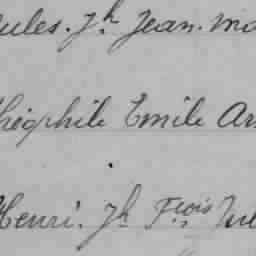 Jules. Jh Jean. Ma
Théophile Emile Ar
Henri. Jh Fçois Jul